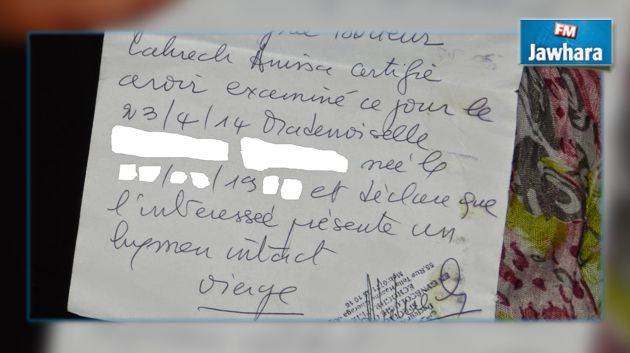 FM
Jawhara
Docteur
Anissa certifié
avoir examiné ce jour le
23/4/14 Mademoiselle
née le
/ / 19 et déclare que
l'interessée présente un
hymen intact
vierge